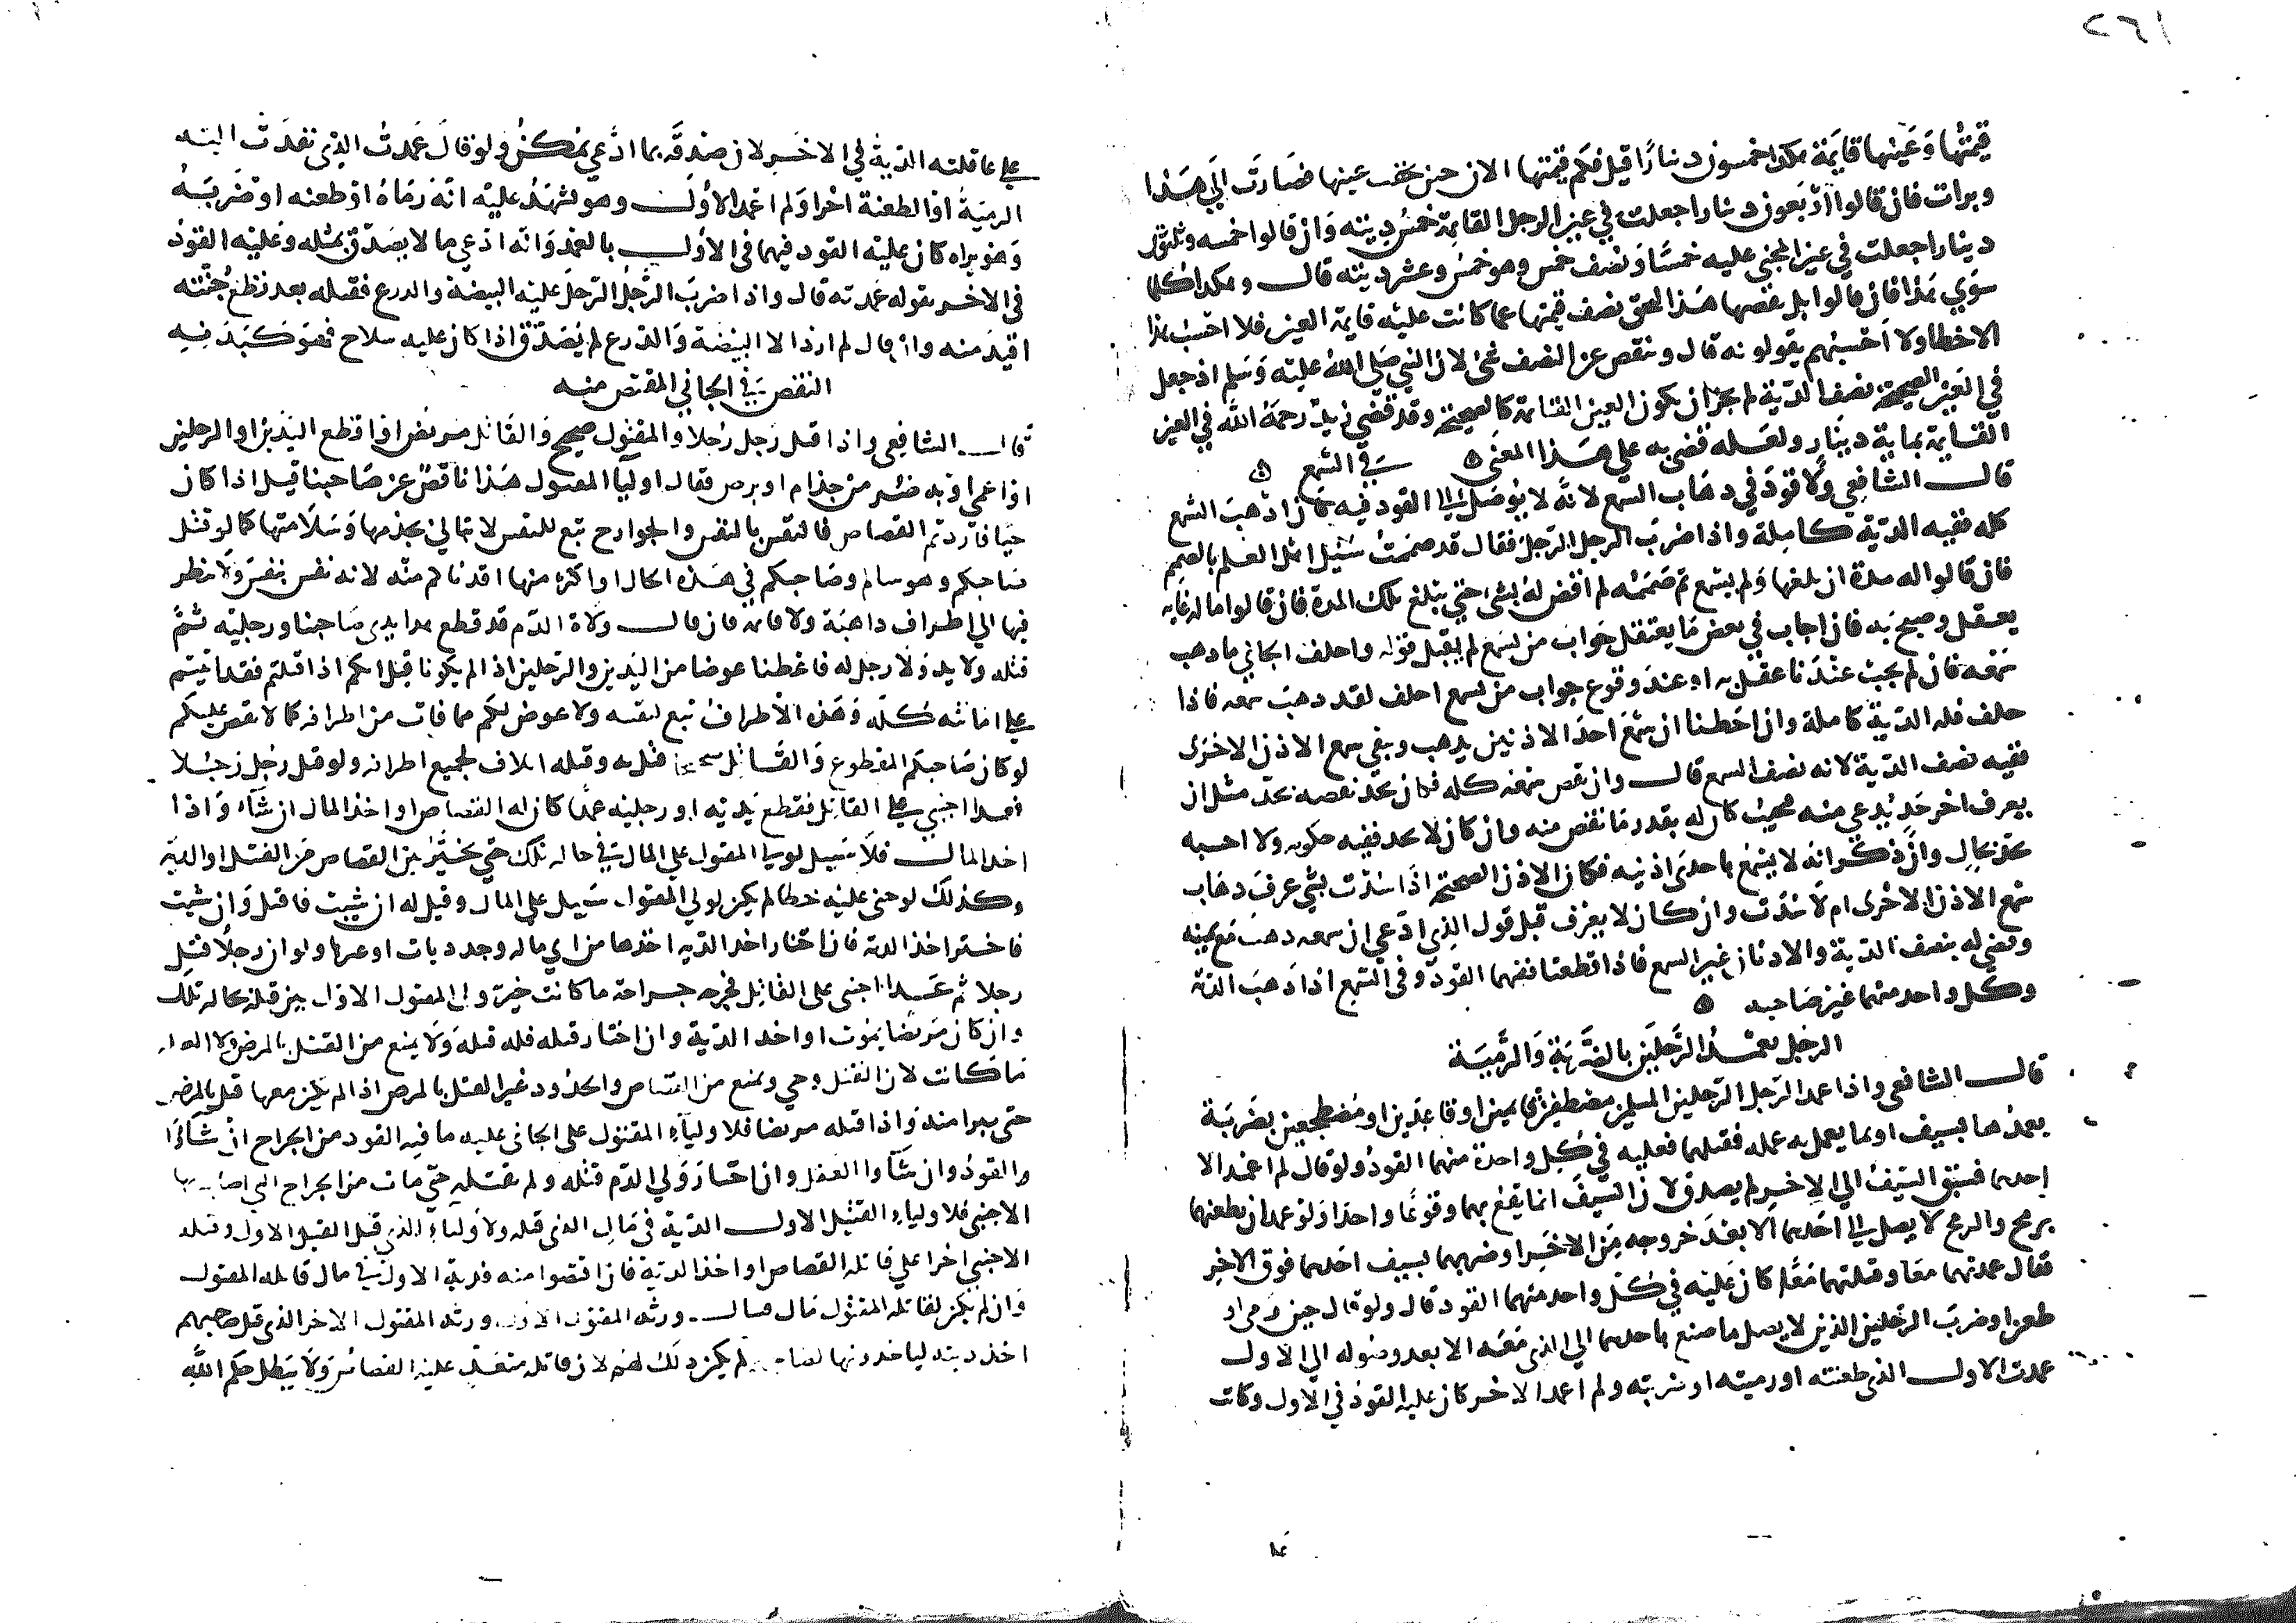 ٢٦١
قيمتها وعينها قايمة هكذا خمسون دينارا قيل فكم قيمتها الان حين بخقت عينها فصارت الي هذا
وبرات فان قالوا اربعون دينارا جعلت في عين الرجل القايمة خمس ديته وان قالوا خمسه وثلثون
دينارا جعلت في عين المجني عليه خمسا ونصف خمس وهو خمس وعشر ديته قال وهكذا كلما
سوي هذا فان قالوا بل نقصها هذا البخق نصف قيمتها عما كانت عليه قايمة العين فلا احسب هذا
الا خطا ولا احسبهم يقولونه قال وننقص عن النصف شي لان النبي صلى الله عليه وسلم اذ جعل
في العين الصحيحة نصف الدية لم يجز ان يكون العين القايمة كالصحيحة وقد قضي زيد رحمة الله في العين
القايمة بماية دينار ولعله قضي به علي هذا المعني ه في السمع ه
قال الشافعي ولا قود في ذهاب السمع لانه لا يوصل الي القود فيه فاذا ذهب السمع
كله ففيه الدية كاملة واذا ضرب الرجل الرجل فقال قد صممت سئيل اهل العلم بالصمم
فان قالوا له مدة ان بلغها ولم يسمع تم صممه لم اقض له بشي حتي تبلغ تلك المدة فان قالوا ماله غايه
يعقل وصيح به فان اجاب في بعض ما يعتقل جواب من يسمع لم يقبل قوله واحلف الجاني ما ذهب
سمعه فان لم يجب عندنا عقل به او عند وقوع جواب من يسمع احلف لقد ذهب سمعه فاذا
حلف فله الدية كاملة وان احطنا ان سمع احد الاذنين يذهب وبقي سمع الاذن الاخرى
ففيه نصف الدية لانه نصف السمع قال وان نقص سمعه كله فكان يحد نقصه بحد مثل ان
يعرف اخر حد يدعي منه فيجيب كان له بقدر ما نقص منه وان كان لا يحد ففيه حكومه ولا احسبه
يحد بحال وان ذكر انه لا يسمع باحدى اذنيه فكان الاذن الصحيحة اذا سدت بشي عرف ذهاب
سمع الاذن الاخرى ام لا سدت وان كان لا يعرف قبل قول الذي ادعي ان سمعه ذهب مع يمينه
وقضي له بنصف الدية والاذنان غير السمع فاذا قطعتا ففيهما القود وفي السمع اذا ذهب الدية
وكل واحد منهما غير صاحبه ه
الرجل يعمد الرجلين بالضربة والرمية
قال الشافعي واذا عمد الرجل الرجلين المسلمين مصطفين قايمين او قاعدين او مضطجعين بضربة
يعمدهما بسيف او بما يعمل به عمله فقتلهما فعليه في كل واحدة منهما القود ولو قال لم اعمد الا
احدهما فسبق السيف الي الاخر لم يصدق لان السيف انما يقع بهما وقوعا واحدا ولو عمد ان يطعنهما
برمح والرمح لا يصل الي احدهما الا بعد خروجه من الاخر او ضربهما بسيف احدهما فوق الاخر
فقال عمدتهما معا وقتلتهما معا كان عليه في كل واحد منهما القود قال ولو قال حين رمي او
طعن او ضرب الرجلين الذين لا يصل ما صنع باحدهما الي الذي معه الا بعد وصوله الي الاول
عمدت الاول الذي طعنته او رميته او ضربته ولم اعمد الاخر كان عليه القود في الاول وكانت
علي عاقلته الدية في الاخر لان صدقه بما ادعي يمكن ولو قال عمدت الذي نفذت اليه
الرمية او الطعنة اخرا ولم اعمد الاول وهو يشهد عليه انه رماه او طعنه او ضربه
وهو يراه كان عليه القود فيهما في الاول بالعمد وانه ادعي ما لا يصدق بمثله وعليه القود
في الاخر بقوله عمدته قال واذا ضرب الرجل الرجل عليه البيضة والدرع فقتله بعد قطع جنته
اقيد منه وان قال لم ارد الا البيضة والدرع لم يصدق اذا كان عليه سلاح فهو كبدنه
النقص في الجاني المقتص منه
قال الشافعي واذا قتل رجل رجلا والمقتول صحيح والقاتل مريض او اقطع اليدين او الرجلين
او اعمي او به ضر من جذام او برص فقال اوليا المقتول هذا ناقص عن صاحبنا قيل اذا كان
حيا فاردتم القصاص فالنفس بالنفس والجوارح تبع للنفس لا نبالي بجذمها وسلامتها كما لو قتل
صاحبكم وهو سالم وصاحبكم في هذه الحال او اكثر منها اقدناكم منه لانه نفس بنفس ولا ينظر
فيها الي اطراف ذاهبة ولا قايمة فان قال ولاة الدم قد قطع هذا يدي صاحبنا ورجليه ثم
قتله ولا يد ولا رجل له فاعطنا عوضا من اليدين والرجلين اذ لم يكونا قيل انكم اذا قتلتم فقد اتيتم
علي اماتته كله وهذه الاطراف تبع لنفسه ولا عوض لكم مما فات من اطرافه كما لا نقص عليكم
لو كان صاحبكم المقطوع والقاتل صحيحا قتل به وقتله اتلاف لجميع اطرافه ولو قتل رجل رجلا
فعدا اجنبي علي القاتل فقطع يديه او رجليه عمدا كان له القصاص او اخذ المال ان شاء واذا
اخذ المال فلا سبيل لوليا المقتول علي المال في حاله تلك حتي يخير بين القصاص من القتل او الديه
وكذلك لو جني عليه خطا لم يكن لولي المقتول سبيل علي المال وقيل له ان شيت فاقتل وان شيت
فاختر اخذ الدية فان اختار اخذ الديه اخذها من اي ماله وجد ديات او غيرها ولو ان رجلا قتل
رجلا ثم عدا اجنبي علي القاتل فجرحه جراحة ما كانت خير ولي المقتول الاول بين قتله بحاله تلك
وان كان مريضا يموت او اخذ الدية وان اختار قتله فله قتله ولا يمنع من القتل بالمرض ولا العلة
ما كانت لان القتل وحي ويمنع من القصاص والحدود غير القتل بالمرض اذا لم يكن معها قتل بالمرض
حتي يبرا منه واذا قتله مريضا فلاولياء المقتول علي الجاني عليه ما فيه القود من الجراح ان شاؤا
القود وان شاوا العقل وان اختار ولي الدم قتله ولم يقتله حتي مات من الجراح التي اصابه بها
الاجنبي فلاولياء القتيل الاول الدية في مال الذي قتله ولاولياء الذي قتل القتيل الاول وقتله
الاجنبي اخرا علي قاتله القصاص او اخذ الدية فان اقتصوا منه فدية الاول في مال قاتله المقتول
وان لم يكن لقاتله المقتول مال فسال ورثه المقتول الاول ورثه المقتول الاخر الذي قتل صاحبهم
اخذ ديته لياخذونها لم يكن ذلك لهم لان قاتله متعد عليه القصاص ولا يبطل حكم الله